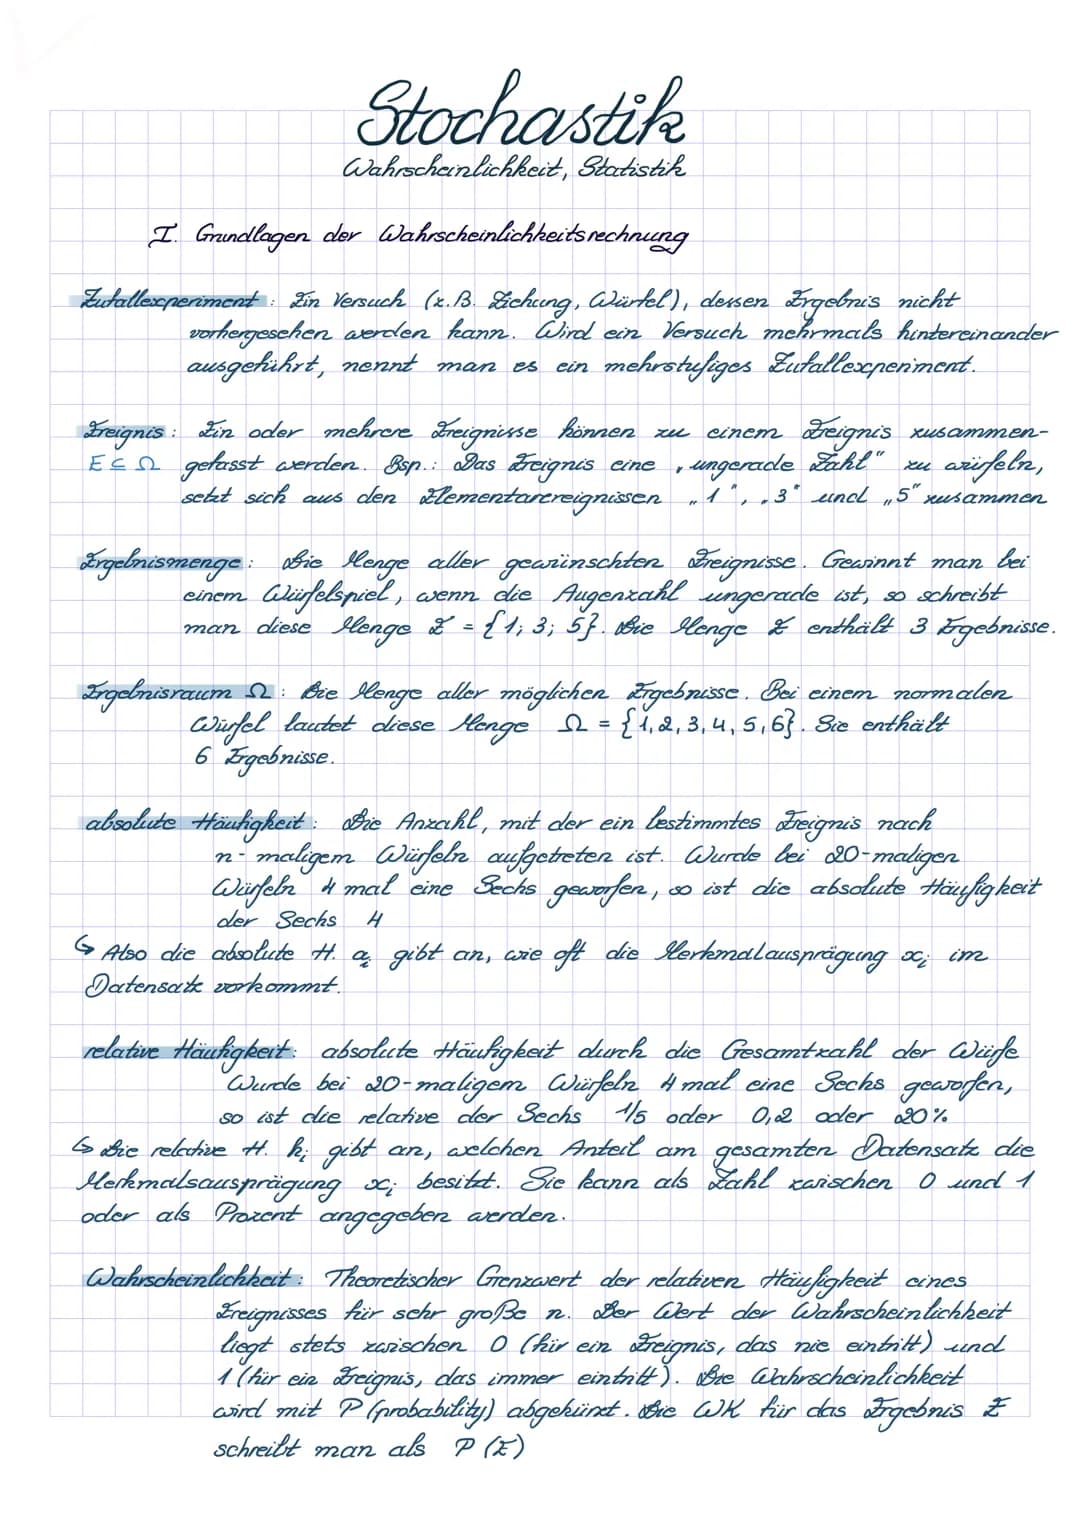 Stochastik
Wahrscheinlichkeit, Statistik
I. Grundlagen der Wahrscheinlichkeitsrechnung
Zufallexperiment: Ein Versuch (z.B. Ziehung, Würfel), dessen Ergebnis nicht
vorhergesehen werden kann. Wird ein Versuch mehrmals hintereinander
ausgeführt, nennt man es ein mehrstufiges Zufallexperiment.
Ereignis: Ein oder mehrere Ereignisse können zu einem Ereignis zusammen-
E ⊆ Ω gefasst werden. Bsp.: Das Ereignis eine „ungerade Zahl" zu würfeln,
setzt sich aus den Elementarereignissen „1", „3" und „5" zusammen
Ergebnismenge: Die Menge aller gewünschten Ereignisse. Gewinnt man bei
einem Würfelspiel, wenn die Augenzahl ungerade ist, so schreibt
man diese Menge E = {1; 3; 5}. Die Menge E enthält 3 Ergebnisse.
Ergebnisraum Ω: Die Menge aller möglichen Ergebnisse. Bei einem normalen
Würfel lautet diese Menge Ω = {1,2,3,4,5,6}. Sie enthält
6 Ergebnisse.
absolute Häufigkeit: Die Anzahl, mit der ein bestimmtes Ereignis nach
n-maligem Würfeln aufgetreten ist. Wurde bei 20-maligen
Würfeln 4 mal eine Sechs geworfen, so ist die absolute Häufigkeit
der Sechs 4
↳ Also die absolute H. aᵢ gibt an, wie oft die Merkmalausprägung xᵢ im
Datensatz vorkommt.
relative Häufigkeit: absolute Häufigkeit durch die Gesamtzahl der Würfe
Wurde bei 20-maligem Würfeln 4 mal eine Sechs geworfen,
so ist die relative der Sechs 1/5 oder 0,2 oder 20%
↳ Die relative H. hᵢ gibt an, welchen Anteil am gesamten Datensatz die
Merkmalsausprägung xᵢ besitzt. Sie kann als Zahl zwischen 0 und 1
oder als Prozent angegeben werden.
Wahrscheinlichkeit: Theoretischer Grenzwert der relativen Häufigkeit eines
Ereignisses für sehr große n. Der Wert der Wahrscheinlichkeit
liegt stets zwischen 0 (für ein Ereignis, das nie eintritt) und
1 (für ein Ereignis, das immer eintritt). Die Wahrscheinlichkeit
wird mit P (probability) abgekürzt. Die WK für das Ergebnis E
schreibt man als P(E)